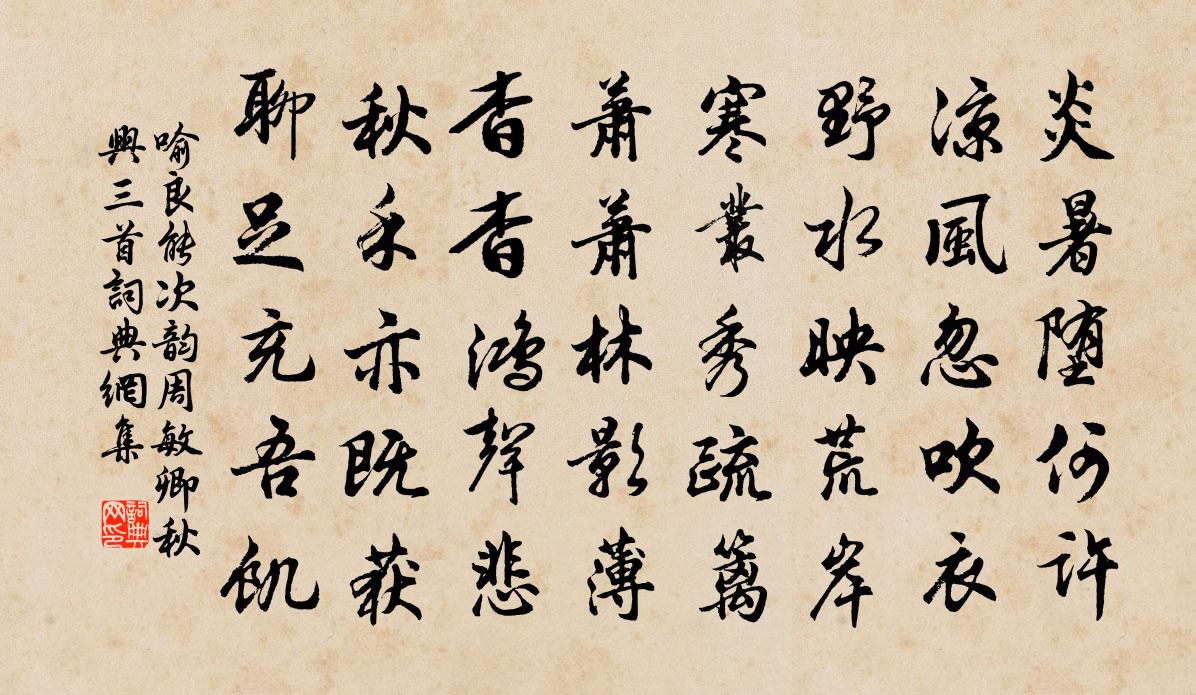 炎暑堕何许
涼風忽吹衣
野水映荒岸
寒叢秀疏篱
蕭蕭林影薄
杳杳鸿聲悲
秋禾亦既获
聊足充吾飢
喻良能次韵周敏卿秋
興三首詞典網集
詞典
网印